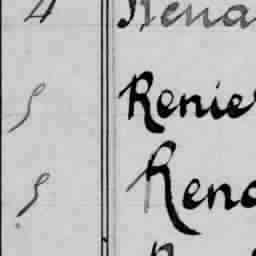 4 Rena
5 Renie
5 Reno